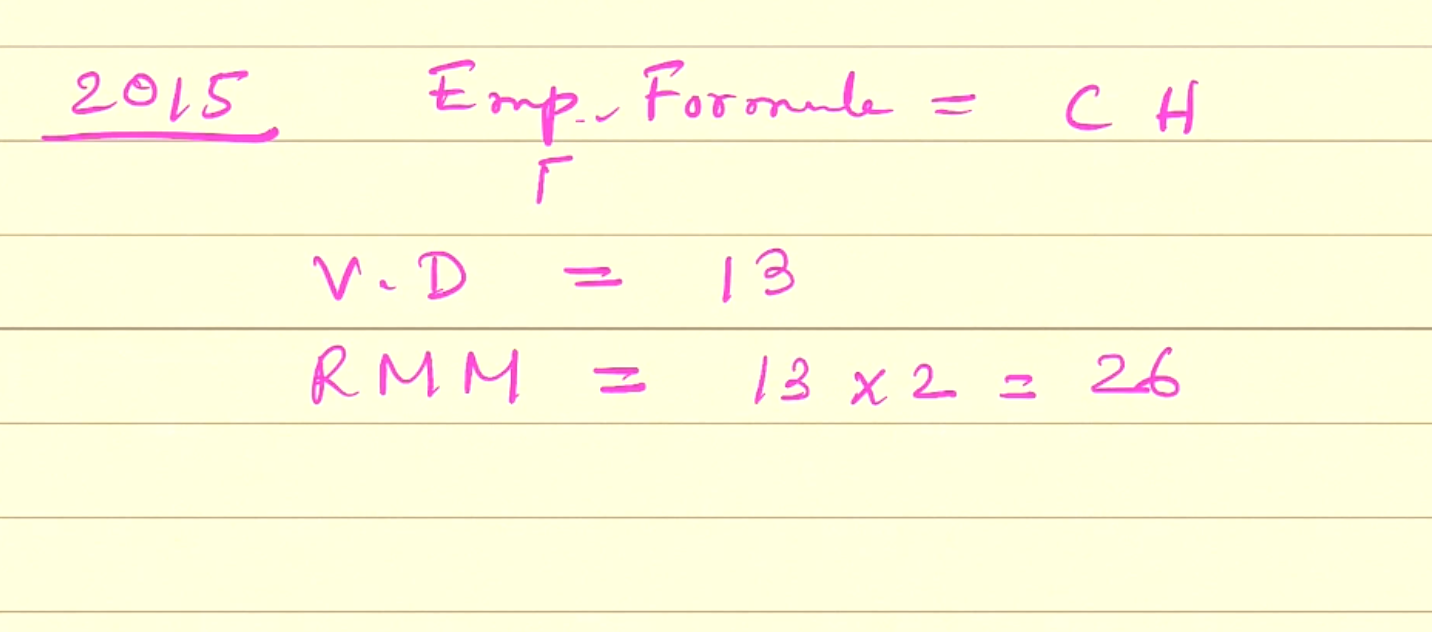 2015 Emp. Formule = CH
V.D = 13
RMM = 13 x 2 = 26